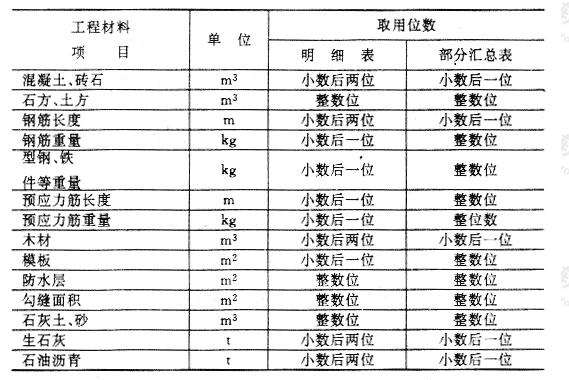 工程材料 单 位 取用位数
项 目 明 细 表 部分汇总表
混凝土、砖石 m³ 小数后两位 小数后一位
石方、土方 m³ 整数位 整数位
钢筋长度 m 小数后两位 小数后一位
钢筋重量 kg 小数后一位 整数位
型钢、铁
件等重量 kg 小数后一位 整数位
预应力筋长度 m 小数后一位 整数位
预应力筋重量 kg 小数后一位 整位数
木材 m³ 小数后两位 小数后一位
模板 m² 小数后一位 整数位
防水层 m² 整数位 整数位
勾缝面积 m² 整数位 整数位
石灰土、砂 m³ 整数位 整数位
生石灰 t 小数后两位 小数后一位
石油沥青 t 小数后两位 小数后一位